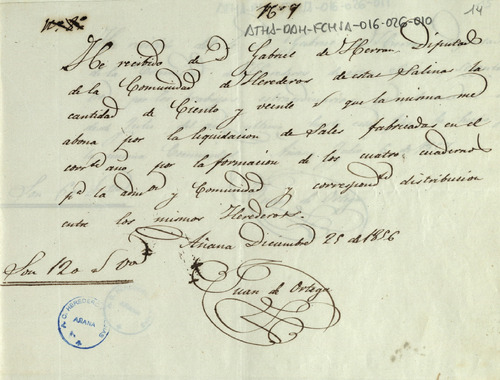 Nº 9
14
ATHA-DAH-FCHSA-016-026-010
He recibido de Dº Gabriel de Herran Diputado
de la Comunidad de Herederos de estas Salinas la
cantidad de Ciento y veinte rs que la misma me
abona por la liquidacion de Sales fabricadas en el
corrte año, por la formacion de los cuatro cuadernos
pª la admon y Comunidad y correspondte distribucion
entre los mismos Herederos.
Añana Diciembre 25 de 1856
Son 120 rs vn
Juan de Ortega
AÑANA